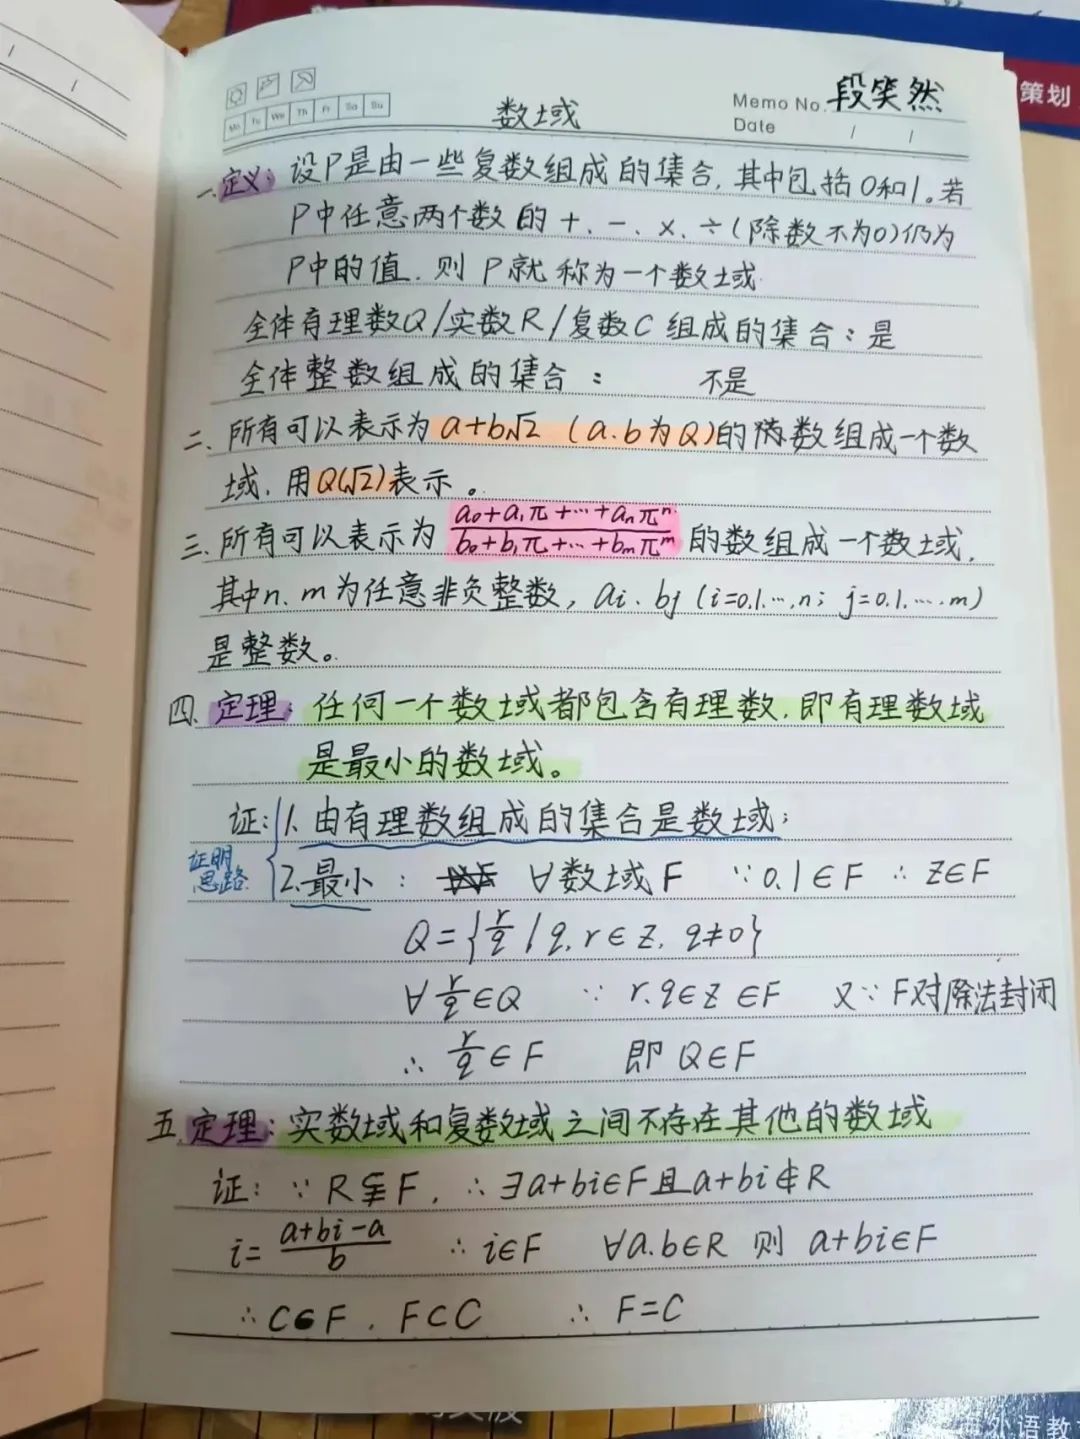 策划
Mo Tu We Th Fr Sa Su
数域
Memo No. 段笑然
Date / /
一、定义：设P是由一些复数组成的集合,其中包括0和1。若
P中任意两个数的+、-、×、÷(除数不为0)仍为
P中的值.则P就称为一个数域.
全体有理数Q/实数R/复数C组成的集合：是
全体整数组成的集合： 不是
二、所有可以表示为a+b√2 (a.b为Q)的数组成一个数
域,用Q(√2)表示。
三、所有可以表示为 (a₀+a₁π+…+aₙπⁿ)/(b₀+b₁π+…+bₘπᵐ) 的数组成一个数域,
其中n、m为任意非负整数, aᵢ、bⱼ (i=0.1.…,n; j=0.1.….m)
是整数。
四、定理：任何一个数域都包含有理数.即有理数域
是最小的数域。
证：1.由有理数组成的集合是数域；
证明
思路
2.最小： ∀数域F ∵0.1∈F ∴Z∈F
Q={r/q | q.r∈Z, q≠0}
∀ r/q ∈Q ∵ r.q∈Z ∈F 又∵ F对除法封闭
∴ r/q ∈F 即 Q∈F
五.定理：实数域和复数域之间不存在其他的数域
证：∵ R⊊F, ∴∃a+bi∈F且a+bi∉R
i= (a+bi-a)/b ∴ i∈F ∀a.b∈R 则 a+bi∈F
∴ C F, F⊂C ∴ F=C
外语教